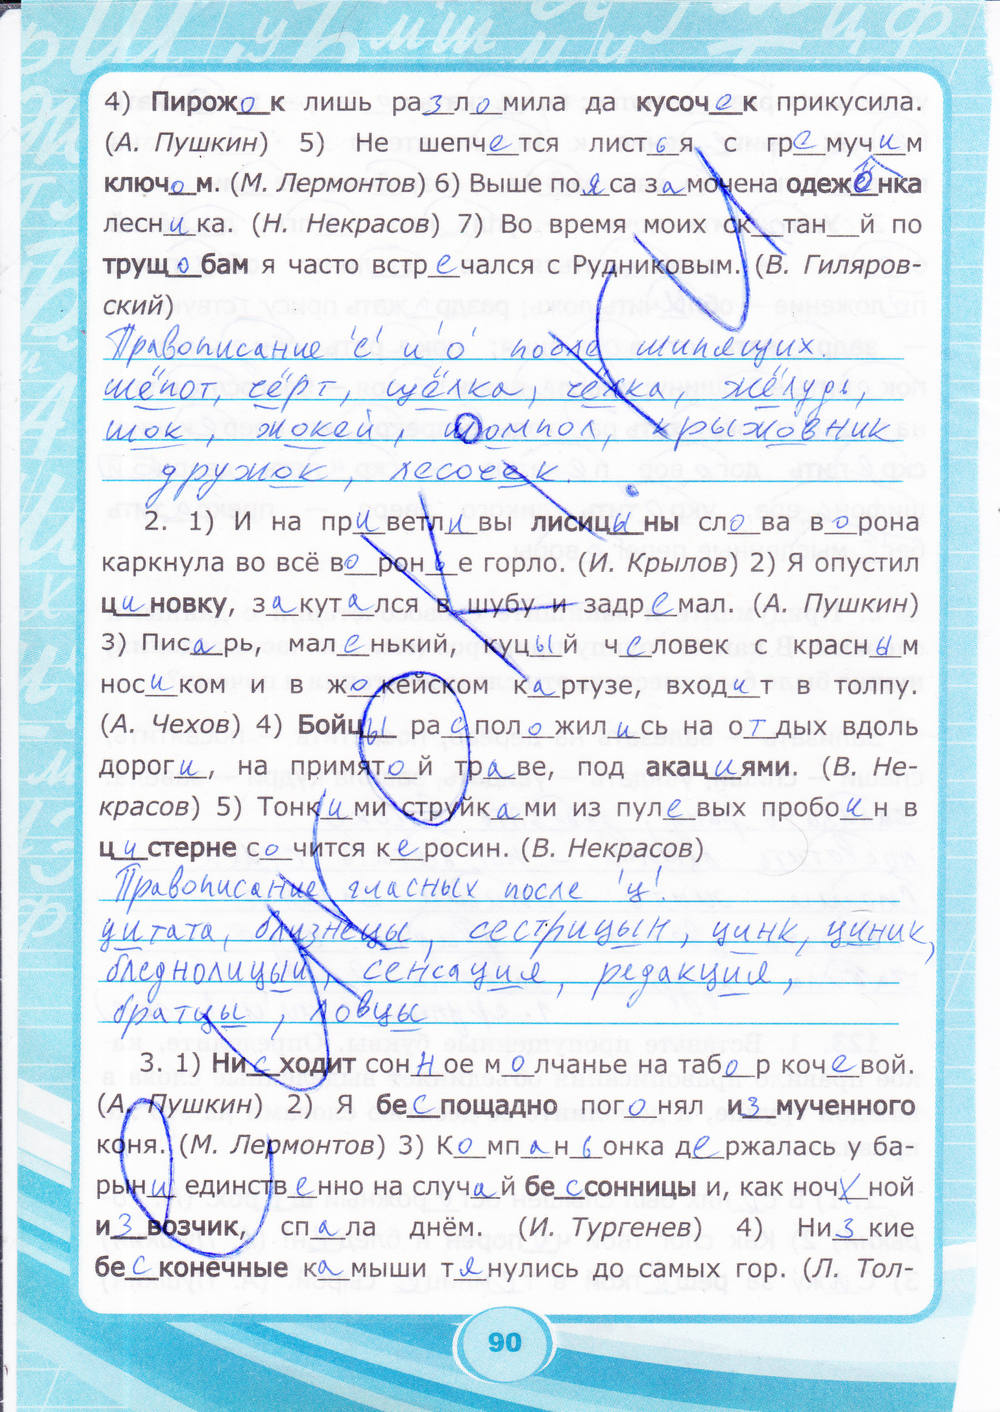 4) Пирожо_к лишь раз_о_мила да кусоч_е_к прикусила.
(А. Пушкин) 5) Не шепч_е_тся листья с гре_муч_и_м
ключ_о_м. (М. Лермонтов) 6) Выше пояса замочена одежонка
лесника. (Н. Некрасов) 7) Во время моих ск__тан__й по
трущ_о_бам я часто встр_е_чался с Рудниковым. (В. Гиляров-
ский)
Правописание 'ё' и 'о' после шипящих.
шёпот, чёрт, щёлка, чёлка, жёлудь,
шок, жокей, шомпол, крыжовник
дружок, лесочек.
2. 1) И на пр_и_ветл_и_вы лисиц_ы_ны сл_о_ва в_о_рона
каркнула во всё в_о_рон_ь_е горло. (И. Крылов) 2) Я опустил
ц_и_новку, з_а_кут_а_лся в шубу и задр_е_мал. (А. Пушкин)
3) Пис_а_рь, мал_е_нький, куц_ы_й ч_е_ловек с красн_ы_м
нос_и_ком и в ж_о_кейском к_а_ртузе, вход_и_т в толпу.
(А. Чехов) 4) Бойц_ы_ ра_с_пол_о_жил_и_сь на о_т_дых вдоль
дорог_и_, на примят_о_й тр_а_ве, под акац_и_ями. (В. Не-
красов) 5) Тонк_и_ми струйк_а_ми из пул_е_вых пробо_и_н в
ц_и_стерне с_о_чится к_е_росин. (В. Некрасов)
Правописание гласных после 'ц'.
цитата, близнецы, сестрицын, цинк, циник,
бледнолицый, сенсация, редакция,
братцы, ловцы
3. 1) Ни_с_ходит сон_н_ое м_о_лчанье на таб_о_р коч_е_вой.
(А. Пушкин) 2) Я бе_с_пощадно пог_о_нял из_мученного
коня. (М. Лермонтов) 3) К_о_мп_а_н_ь_онка д_е_ржалась у ба-
рын_и_ единств_е_нно на случ_а_й бе_с_сонницы и, как ноч__ной
и_з_возчик, сп_а_ла днём. (И. Тургенев) 4) Ни_з_кие
бе_с_конечные к_а_мыши т_я_нулись до самых гор. (Л. Тол-
90